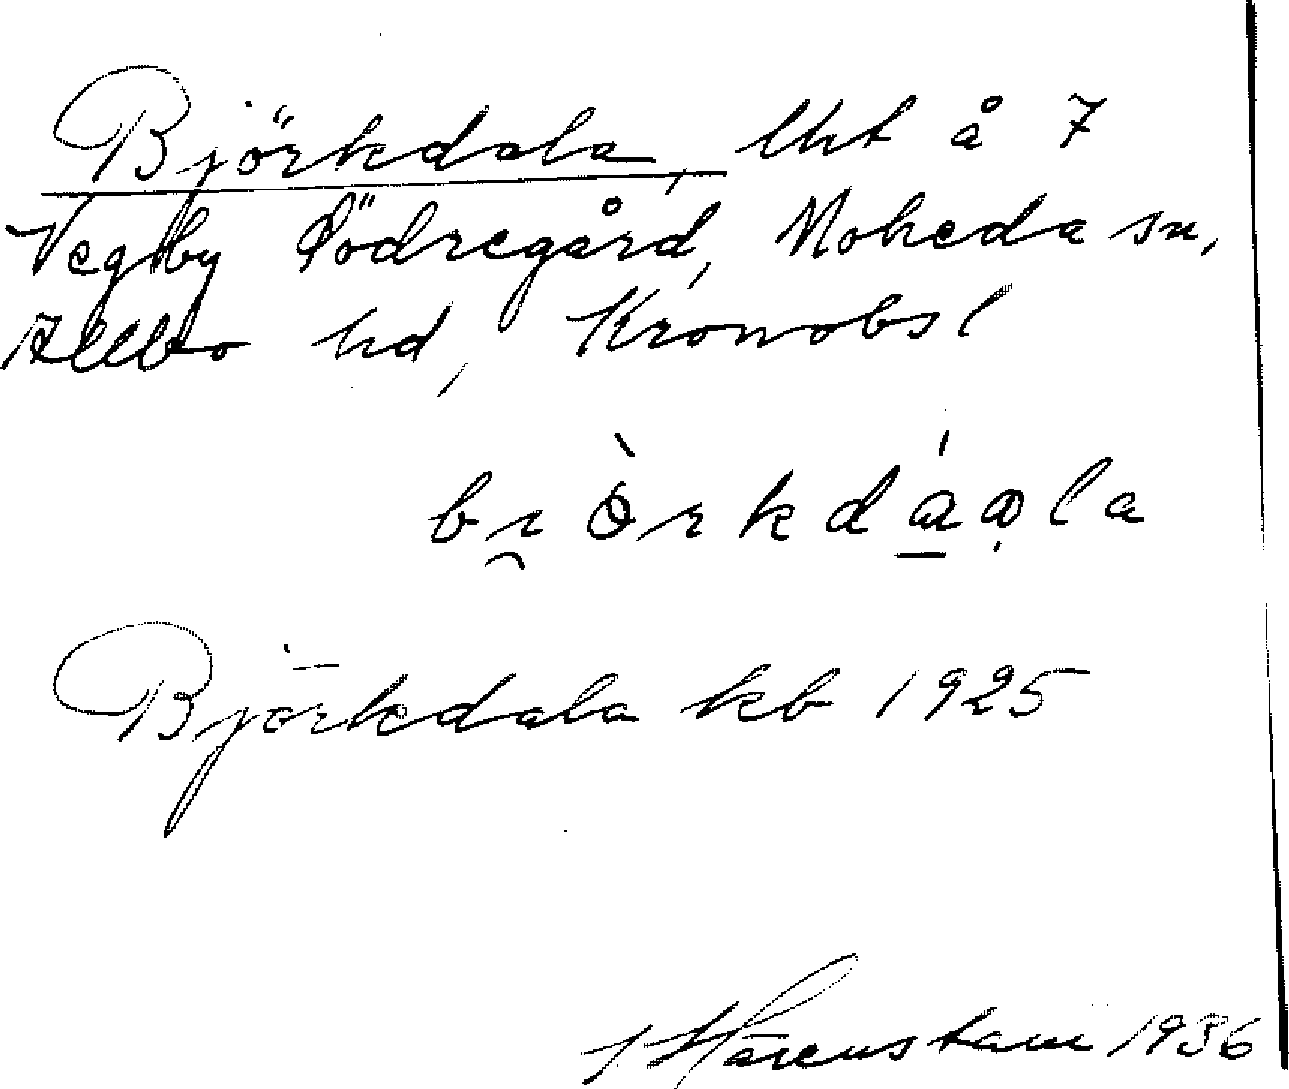 Björkdala, lht å 7
Vegby Södregård, Moheda sn,
Allbo hd, Kronobs l
Björkdala kb 1925
Härenstam 1936